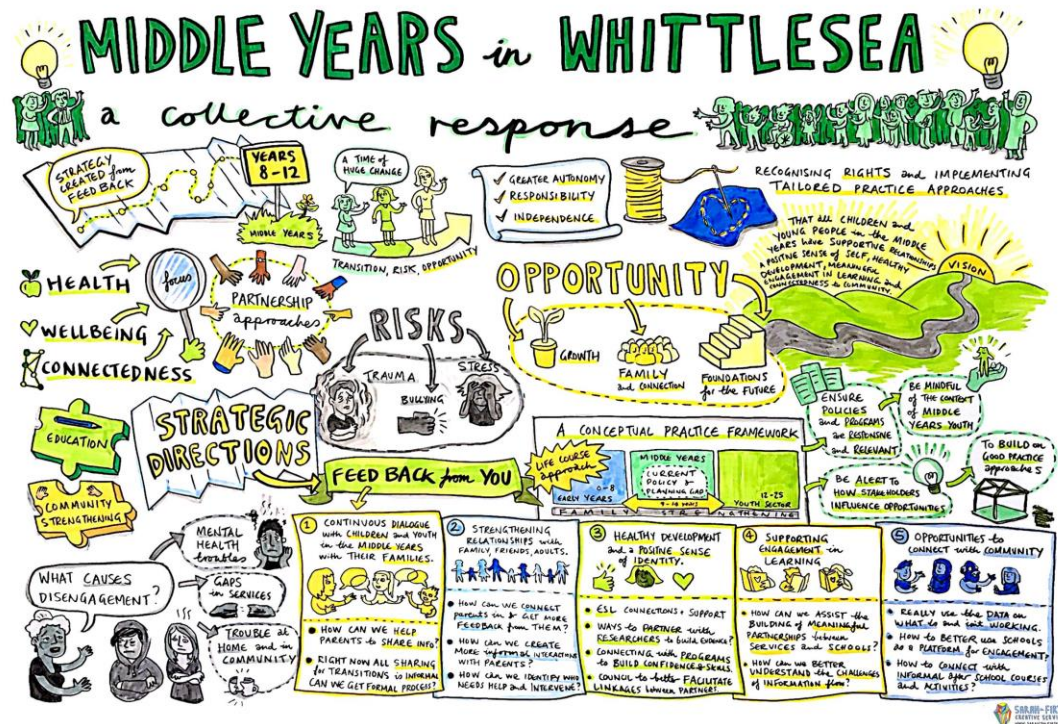 MIDDLE YEARS in WHITTLESEA
a collective response
STRATEGY
CREATED from
FEEDBACK
YEARS
8-12
MIDDLE YEARS
A TIME OF
HUGE CHANGE
TRANSITION, RISK, OPPORTUNITY
✓ GREATER AUTONOMY
✓ RESPONSIBILITY
✓ INDEPENDENCE
RECOGNISING RIGHTS and IMPLEMENTING
TAILORED PRACTICE APPROACHES
THAT all CHILDREN and
YOUNG PEOPLE in the MIDDLE
YEARS have SUPPORTIVE RELATIONSHIPS
A POSITIVE SENSE of SELF, HEALTHY
DEVELOPMENT, MEANINGFUL
ENGAGEMENT IN LEARNING and
CONNECTEDNESS to COMMUNITY.
VISION
HEALTH
WELLBEING
CONNECTEDNESS
focus
PARTNERSHIP
approaches
RISKS
TRAUMA
BULLYING
STRESS
OPPORTUNITY
GROWTH
FAMILY
and CONNECTION
FOUNDATIONS
for the FUTURE
ENSURE
POLICIES
and PROGRAMS
are RESPONSIVE
and RELEVANT
BE MINDFUL
of the CONTEXT
of MIDDLE
YEARS YOUTH
BE ALERT to
HOW STAKEHOLDERS
INFLUENCE OPPORTUNITIES
TO BUILD on
GOOD PRACTICE
approaches
EDUCATION
COMMUNITY
STRENGTHENING
STRATEGIC
DIRECTIONS
FEED BACK from YOU
A CONCEPTUAL PRACTICE FRAMEWORK
LIFE COURSE
approach
0-8
EARLY YEARS
MIDDLE YEARS
CURRENT
POLICY &
PLANNING GAP
12-25
YOUTH SECTOR
FAMILY STRENGTHENING
WHAT CAUSES
DISENGAGEMENT?
MENTAL
HEALTH
troubles
GAPS
in SERVICES
TROUBLE at
HOME and in
COMMUNITY
1 CONTINUOUS DIALOGUE
with CHILDREN and YOUTH
in the MIDDLE YEARS
WITH THEIR FAMILIES.
• HOW CAN WE HELP
PARENTS to SHARE INFO?
• RIGHT NOW ALL SHARING
for TRANSITIONS is INFORMAL
CAN WE GET FORMAL PROCESS?
2 STRENGTHENING
RELATIONSHIPS with
FAMILY, FRIENDS, ADULTS.
• HOW can WE CONNECT
parents in & GET MORE
FEEDBACK from THEM?
• HOW can WE CREATE
MORE informal INTERACTIONS
WITH PARENTS?
• HOW can WE IDENTIFY WHO
NEEDS HELP and INTERVENE?
3 HEALTHY DEVELOPMENT
and a POSITIVE SENSE
of IDENTITY.
• ESL CONNECTIONS + SUPPORT
• WAYS to PARTNER with
RESEARCHERS to build EVIDENCE?
• CONNECTING with PROGRAMS
to BUILD CONFIDENCE & SKILLS
• COUNCIL to better FACILITATE
LINKAGES between PARTNERS
4 SUPPORTING
ENGAGEMENT in
LEARNING
• HOW CAN WE ASSIST the
BUILDING of MEANINGFUL
PARTNERSHIPS between
SERVICES and SCHOOLS?
• HOW can WE BETTER
UNDERSTAND the CHALLENGES
of INFORMATION flow?
5 OPPORTUNITIES to
CONNECT with COMMUNITY
• REALLY use the DATA on
WHAT is and isn't WORKING.
• HOW to BETTER use SCHOOLS
as a PLATFORM for ENGAGEMENT?
• HOW to CONNECT with
INFORMAL after SCHOOL COURSES
and ACTIVITIES?